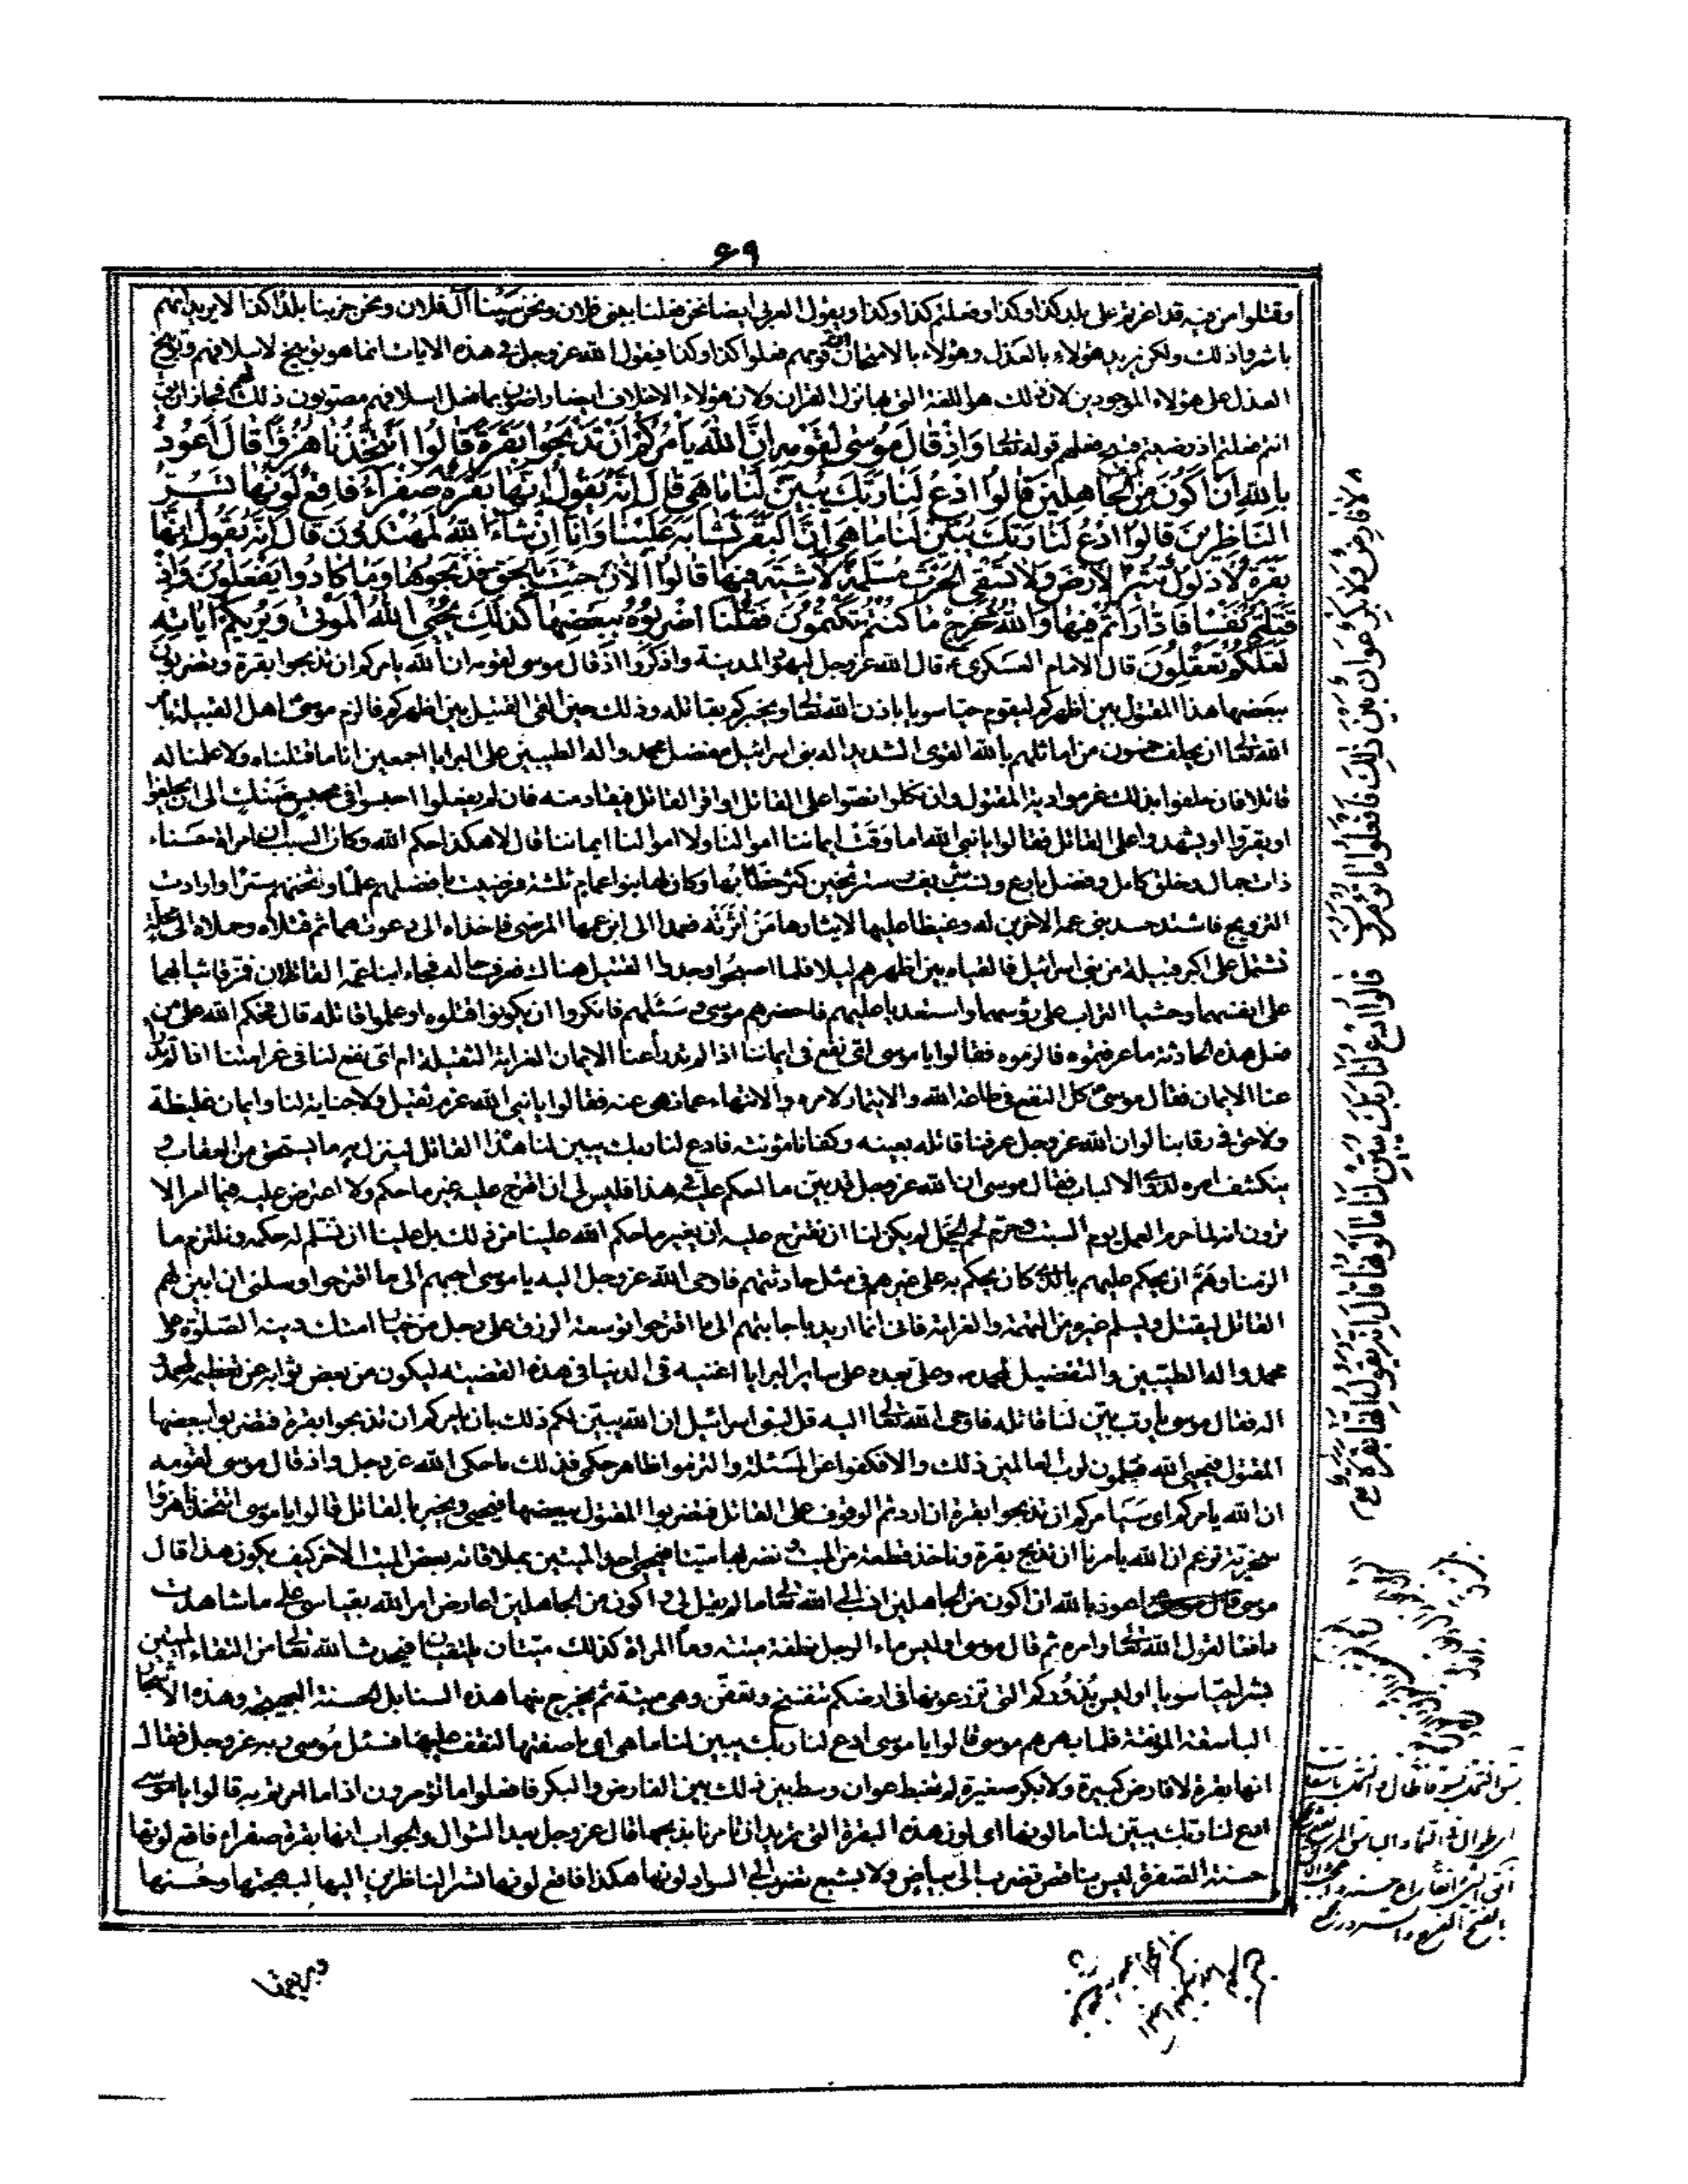 ۶۹
وقتلوا من فيه قد اغرتم على بلد كذا وكذا وفعلتم كذا وكذا ويقول العربي ايضا نحن فعلنا ببني فلان ونحن سبينا آل فلان ونحن خربنا بلد كذا لا يريد انهم
باشروا ذلك ولكن يريد هؤلاء بالعذل وهؤلاء بالامتحان ان قومهم فعلوا كذا وكذا فيقول الله عز وجل في هذه الايات انما هو توبيخ لاسلافهم وتوبيخ
العذل على هؤلاء الموجودين لان ذلك هو اللغة التي بها نزل القران ولان هؤلاء الاخلاف ايضا راضون بما فعل اسلافهم مصوبون ذلك لهم فجاز ان يق
انتم فعلتم اذ رضيتم قبيح فعلهم قوله تعالى وَاِذْ قَالَ مُوسٰى لِقَوْمِهِ اِنَّ اللّٰهَ يَأْمُرُكُمْ اَنْ تَذْبَحُوا بَقَرَةً قَالُوا اَتَتَّخِذُنَا هُزُوًا قَالَ اَعُوذُ
بِاللّٰهِ اَنْ اَكُونَ مِنَ الْجَاهِلِينَ قَالُوا ادْعُ لَنَا رَبَّكَ يُبَيِّنْ لَنَا مَا هِيَ قَالَ اِنَّهُ يَقُولُ اِنَّهَا بَقَرَةٌ صَفْرَاءُ فَاقِعٌ لَوْنُهَا تَسُرُّ
النَّاظِرِينَ قَالُوا ادْعُ لَنَا رَبَّكَ يُبَيِّنْ لَنَا مَا هِيَ اِنَّ الْبَقَرَ تَشَابَهَ عَلَيْنَا وَاِنَّا اِنْ شَاءَ اللّٰهُ لَمُهْتَدُونَ قَالَ اِنَّهُ يَقُولُ اِنَّهَا
بَقَرَةٌ لَا ذَلُولٌ تُثِيرُ الْاَرْضَ وَلَا تَسْقِي الْحَرْثَ مُسَلَّمَةٌ لَا شِيَةَ فِيهَا قَالُوا الْاٰنَ جِئْتَ بِالْحَقِّ فَذَبَحُوهَا وَمَا كَادُوا يَفْعَلُونَ وَاِذْ
قَتَلْتُمْ نَفْسًا فَادَّارَاْتُمْ فِيهَا وَاللّٰهُ مُخْرِجٌ مَا كُنْتُمْ تَكْتُمُونَ فَقُلْنَا اضْرِبُوهُ بِبَعْضِهَا كَذٰلِكَ يُحْيِي اللّٰهُ الْمَوْتٰى وَيُرِيكُمْ اٰيَاتِهِ
لَعَلَّكُمْ تَعْقِلُونَ قال الامام العسكري ع قال الله عز وجل ليهود المدينة واذكروا اذ قال موسى لقومه ان الله يامركم ان تذبحوا بقرة وتضربون
ببعضها هذا المقتول بين اظهركم ليقوم حيا سويا باذن الله تعالى ويخبركم بقاتله وذلك حين القي القتيل بين اظهركم فالزم موسى اهل القبيلة بامر
الله تعالى ان يحلف خمسون من اماثلهم بالله القوي الشديد اله بني اسرائيل مفضل محمد واله الطيبين على البرايا اجمعين انا ما قتلناه ولا علمنا له
قاتلا فان حلفوا بذلك غرموا دية المقتول وان نكلوا نصوا على القاتل او اقر القاتل فيقاد منه فان لم يفعلوا احبسوا في محبس ضنك الى ان يحلفوا
او يقروا او يشهدوا على القاتل فقالوا يا نبي الله اما وقت ايماننا اموالنا ولا اموالنا ايماننا قال لا هكذا حكم الله وكان السبب ان امراة حسناء
ذات جمال وخلق كامل وفضل بارع ونسب شريف وستر ثخين كثر خطابها وكان لها بنو اعمام ثلثة فرضيت بافضلهم علما واثخنهم سترا وارادت
التزويج فاشتد حسد بني عمه الاخرين له وغبطاه عليها لايثارها من اثرته فعمدا الى ابن عمها المرضي فاخذاه الى دعوتهما ثم قتلاه وحملاه الى محلة
تشتمل على اكبر قبيلة من بني اسرائيل فالقياه بين اظهرهم ليلا فلما اصبحوا وجدوا القتيل هناك فعرف حاله فجاء ابنا عمه القاتلان فمزقا ثيابهما
على انفسهما وحثيا التراب على رؤسهما واستعديا عليهم فاحضرهم موسى وسئلهم فانكروا ان يكونوا قتلوه او علموا قاتله قال فحكم الله على من
فعل هذه الحادثة ما عرفتموه فالزموه فقالوا يا موسى اي نفع في ايماننا اذا لم تدرأ عنا الايمان الغرامة الثقيلة ام اي نفع لنا في غرامتنا اذا لم تدرأ
عنا الايمان فقال موسى كل النفع في طاعة الله والايتمار لامره والانتهاء عما نهى عنه فقالوا يا نبي الله غرم ثقيل ولا جناية لنا وايمان غليظة
ولا حق في رقابنا لو ان الله عز وجل عرفنا قاتله بعينه وكفانا مؤنته فادع لنا ربك يبين لنا هذا القاتل لينزل به ما يستحق من العقاب و
ينكشف امره لذوي الالباب فقال موسى ان الله عز وجل قد بين ما احكم به في هذا فليس لي ان اقترح عليه غير ما حكم ولا اعترض عليه فيما امر الا
ترون انه لما حرم العمل يوم السبت وحرم لحم الجمل لم يكن لنا ان نقترح عليه ان يغير ما حكم الله علينا من ذلك بل علينا ان نسلم له حكمه ونلتزم ما
الزمنا وهم ان يحكم عليهم بالذي كان يحكم به على غيرهم في مثل حادثتهم فاوحى الله عز وجل اليه يا موسى اجبهم الى ما اقترحوا وسلني ان ابين لهم
القاتل ليقتل ويسلم غيره من التهمة والغرامة فاني انما اريد باجابتهم الى ما اقترحوا توسعة الرزق على رجل من خيار امتك دينه الصلوة على
محمد واله الطيبين والتفضيل لمحمد وعلي بعده على ساير البرايا اغنيه في الدنيا في هذه القضية ليكون من بعض ثوابه عن تعظيمه لمحمد و
اله فقال موسى يا رب بين لنا قاتله فاوحى الله تعالى اليه قل لبني اسرائيل ان الله يبين لكم ذلك بان يامركم ان تذبحوا بقرة فتضربوا ببعضها
المقتول فيحيي الله فتسلمون لرب العالمين ذلك والا فكفوا عن المسئلة والتزموا ظاهر حكمي فذلك ما حكى الله عز وجل واذ قال موسى لقومه
ان الله يامركم اي سيامركم ان تذبحوا بقرة ان اردتم الوقوف على القاتل فتضربوا المقتول ببعضها فيحيى ويخبر بالقاتل قالوا يا موسى اتتخذنا هزوا
سخرية تزعم ان الله يامرنا ان نذبح بقرة وناخذ قطعة من الميت نضرب بها ميتا فيحيى احد الميتين بملاقاته بعض الميت الاخر كيف يكون هذا قال
موسى اعوذ بالله ان اكون من الجاهلين انسب الى الله تعالى ما لم يقل لي و اكون من الجاهلين اعارض امر الله بقياسي على ما شاهدت
دافعا لقول الله تعالى وامره ثم قال موسى اوليس ماء الرجل نطفة ميتة وماء المراة كذلك ميتان يلتقيان فيحدث الله تعالى من التقاء الميتين
بشرا حيا سويا اوليس بذوركم التي تزرعونها في ارضكم تتفسخ وتتعفن وهي ميتة ثم يخرج منها هذه السنابل الحسنة البهيجة وهذه الاشجار
الباسقة المونقة فلما بهرهم موسى قالوا يا موسى ادع لنا ربك يبين لنا ما هي اي ما صفتها لنقف عليها فسئل موسى ربه عز وجل فقال
انها بقرة لا فارض كبيرة ولا بكر صغيرة لم تغبط عوان وسط بين ذلك بين الفارض والبكر فافعلوا ما تؤمرون اذا ما امرتم به قالوا يا موسى
ادع لنا ربك يبين لنا ما لونها اي لون هذه البقرة التي تريد ان تامرنا بذبحها قال عز وجل بعد السؤال والجواب انها بقرة صفراء فاقع لونها
حسنة الصفرة ليس بناقص تضرب الى بياض ولا بمشبع تضرب الى السواد لونها هكذا فاقع لونها تسر الناظرين اليها لبهجتها وحسنها
لَا فَارِضٌ وَلَا بِكْرٌ عَوَانٌ بَيْنَ ذٰلِكَ فَافْعَلُوا مَا تُؤْمَرُونَ قَالُوا ادْعُ لَنَا رَبَّكَ يُبَيِّنْ لَنَا مَا لَوْنُهَا قَالَ اِنَّهُ يَقُولُ اِنَّهَا بَقَرَةٌ